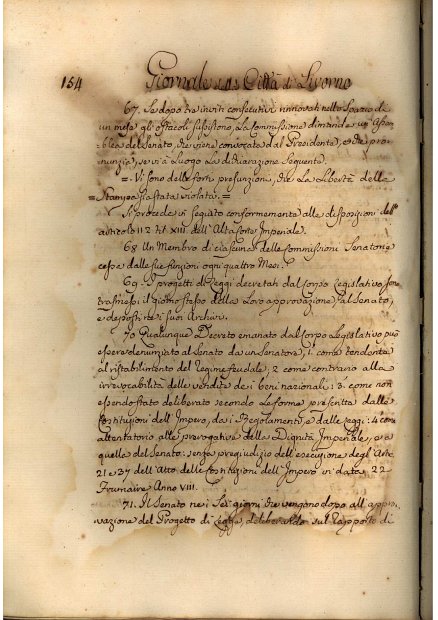 154 Giornale della Città di Livorno
67. Se dopo tre inviti consecutivi rinnovati nello Spazio di
un mese gli Ostacoli sussistono, la Commissione dimanda un' Assem=
blea del Senato, che viene convocata dal Presidente, e che pro=
nunzia, se vi à luogo la dichiarazione Seguente.
=. Vi sono delle forti presunzioni, che la Libertà della
= Stampa sia stata violata. =
Si procede in seguito conformemente alle disposizioni dell'
articolo 112 tit. XIII dell' Alta Corte Imperiale.
68 Un Membro di ciascuna delle Commissioni Senatorie
cessa dalle sue funzioni ogni quattro Mesi.
69. I progetti di Leggi decretati dal Corpo Legislativo sono
trasmessi il giorno stesso della Loro approvazione, al Senato,
e depositate i suoi Archivi.
70 Qualunque Decreto emanato dal Corpo Legislativo può
essere denunziato al Senato da un Senatore, 1° come tendente
al ristabilimento del Regime feudale; 2 come contrario alla
irrevocabilità delle vendite de i beni nazionali: 3° come non
essendo stato deliberato secondo le forme prescritte dalle
Costituzioni dell' Impero, da i Regolamenti e dalle Leggi: 4° come
attentatorio alle prerogative della Dignità Imperiale, e a
quelle del Senato: senza pregiudizio dell' esecuzione degli Art.
21 e 37 dell' Atto delle Costituzioni dell' Impero in data 22
Frumaire Anno VIII.
71. Il Senato ne i Sei giorni che vengono dopo all' appro=
vazione del Progetto di Legge, deliberando sul rapporto di